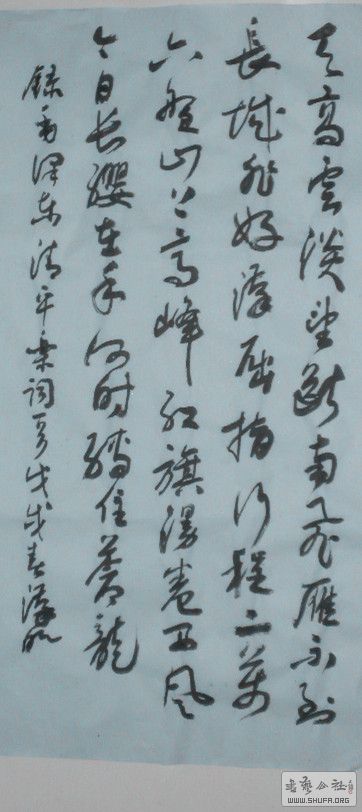 天高雲淡望斷南飛雁不到
長城非好漢屈指行程二萬
六盤山上高峰紅旗漫卷西风
今日长纓在手何时縛住蒼龍
錄毛泽东清平樂詞
書藝公社
WWW.SHUFA.ORG